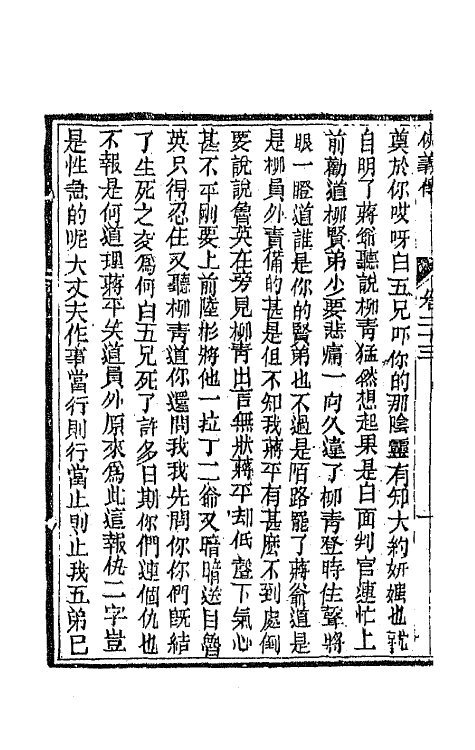 俠義傳
卷二十三
奠於你哎呀白五兄吓你的那陰靈有知大約妍媸也就
自明了蔣爺聽說柳青猛然想起果是白面判官連忙上
前勸道柳賢弟少要悲痛一向久違了柳青登時住聲將
眼一瞪道誰是你的賢弟也不過是陌路罷了蔣爺道是
是柳員外責備的甚是但不知我蔣平有甚麽不到處倒
要說說魯英在旁見柳青出言無狀蔣平却低聲下氣心
甚不平剛要上前陸彬將他一拉丁二爺又暗暗送目魯
英只得忍住又聽柳青道你還問我我先問你你們旣結
了生死之交爲何白五兄死了許多日期你們連個仇也
不報是何道理蔣平笑道員外原來爲此這報仇二字豈
是性急的呢大丈夫作事當行則行當止則止我五弟巳